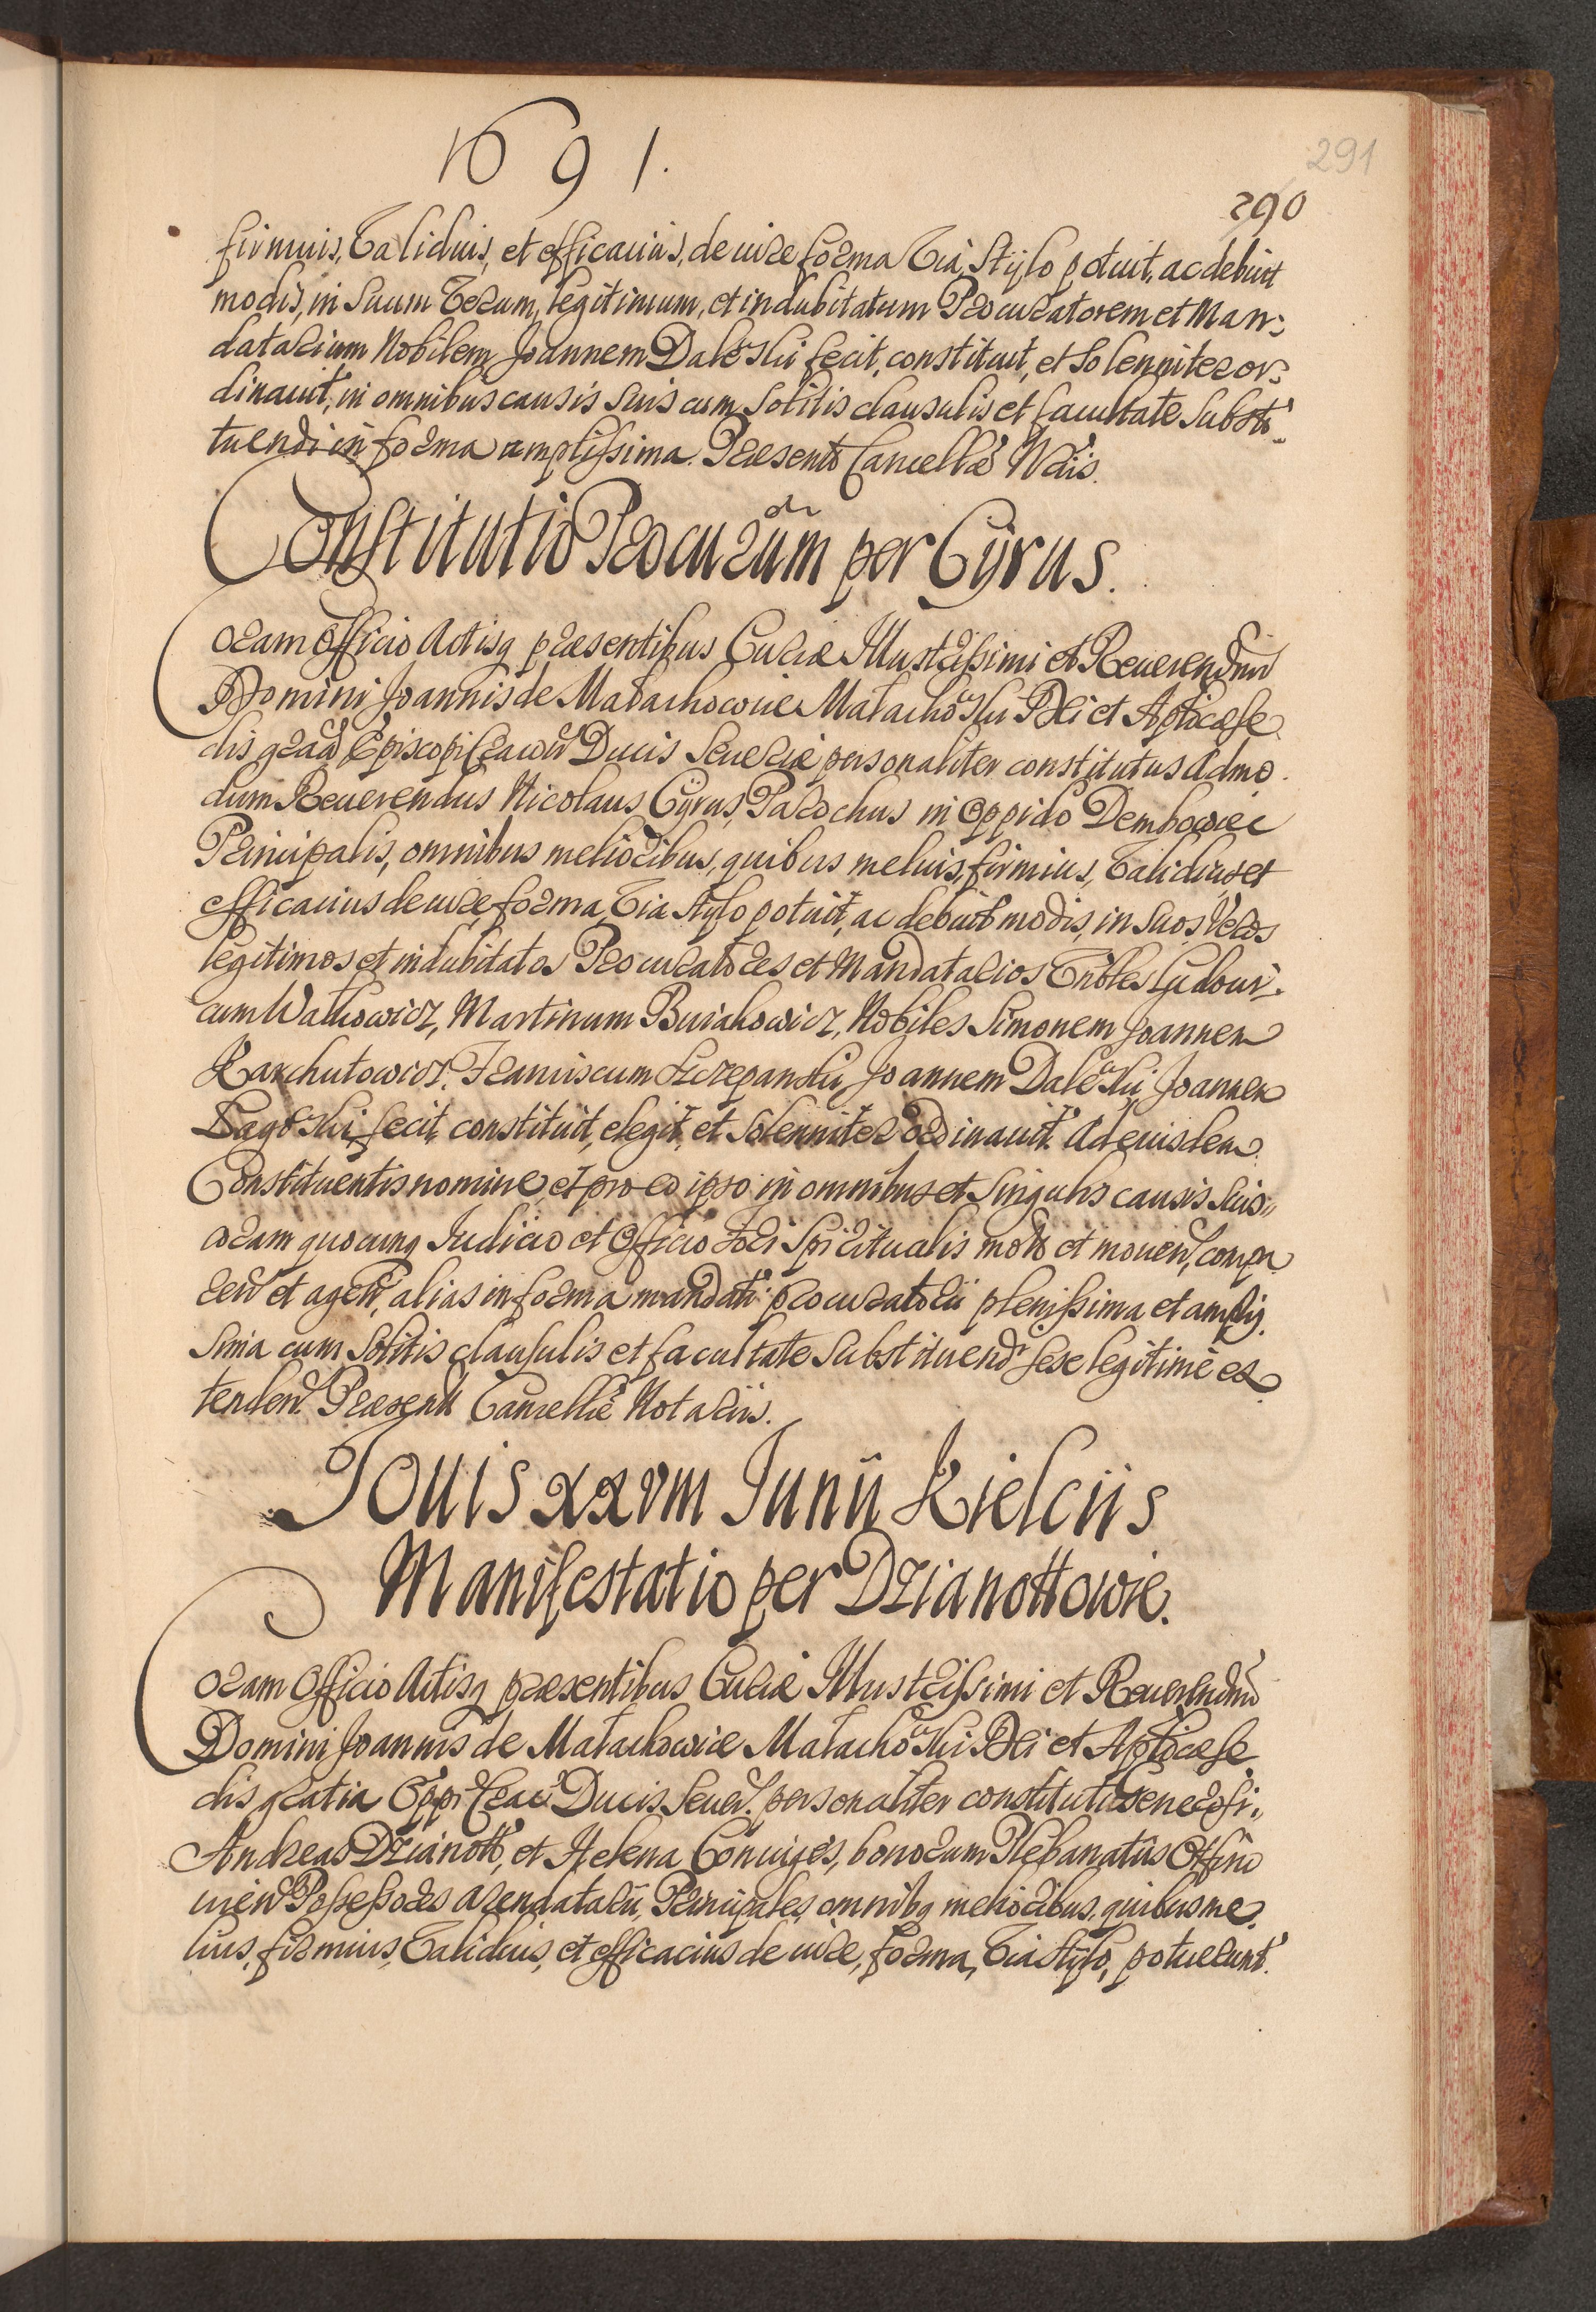 1691.
291
290
firmius, validius, et efficacius, de iure forma via, stylo potuit, ac debuit
modis, in suum verum, legitimum, et indubitatum Procuratorem et Man:
datarium Nobilem Joannem Daleski fecit, constituit, et solenniter or:
dinauit, in omnibus causis suis cum solitis clausulis et facultate substi:
tuendi in forma amplissima. Praesent Cancellae Nrijs.
Constitutio Procurum per Cyrus.
Coram Officio Actisq praesentibus Curiae Illustrissimi et Reuerendmi
Domini Joannis de Małachowice Małachoski Dei et Aplicae Se
dis graa Episcopi Cracou Ducis Seueriae personaliter constitutus Admo
dum Reuerendus Nicolaus Cyrus, Parochus in Oppido Dembowiec
Principalis, omnibus melioribus, quibus melius, firmius, validius et
efficacius de iure forma, via stylo potuit, ac debuit modis, in suos Veros
legitimos et indubitatos Procuratores et Mandatarios Gnbles Ludoui:
cum Walkowicz, Martinum Buiakowicz, Nobiles Simonem Joannem
Karchutowicz, Franciscum Szczepanski Joannem Daleski, Joannem
Łagoski fecit, constituit, elegit, et solenniter ordinauit. Ad eiusdem
Constituentis nomine et pro eo ipso in omnibus et singulis causis suis
coram quocunq Iudicio et Officio fori spiritualis mots et mouend, compa
rend et agend, alias in forma mandati procuratorii plenissima et amplis
sima cum solitis clausulis et facultate substituendi sese legitime ex
tenden. Praesent Cancellae Notariis.
Jouis XXVIII Junii Kielciis
Manifestatio per Dzianottowie.
Coram Officio Actisq praesentibus Curiae Illustrissimi et Reuerendmi
Domini Joannis de Małachowice Małachoski Dei et Aplicae Se
dis gratia Eppi Crac Ducis Seuer. personaliter constituti Generosi
Andreas Dzianott, et Helena Coniuges, bonorum Plebanatus
Possessores arendatarii, Principales omnibq melioribus, quibus me
lius, firmius, validius, et efficacius de iure, forma, via stylo, potuerunt